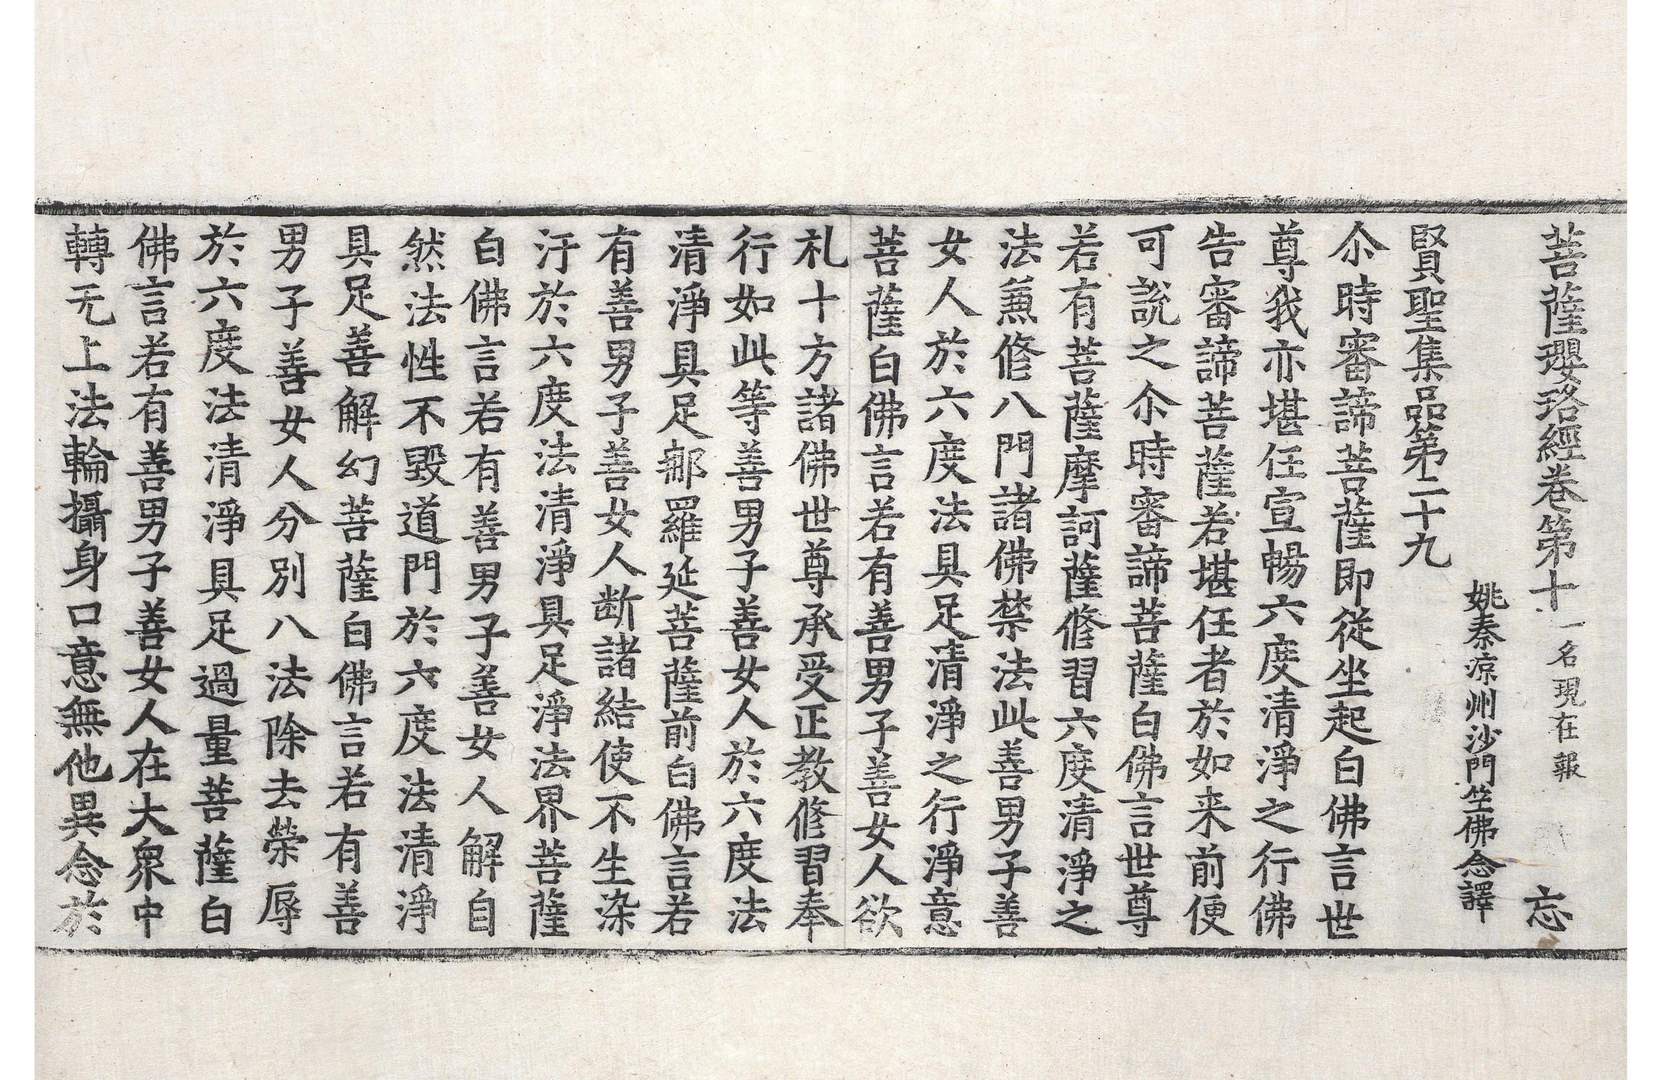 菩薩瓔珞經卷第十一名現在報 忘
姚秦涼州沙門竺佛念譯
賢聖集品第二十九
尒時審諦菩薩即從坐起白佛言世
尊我亦堪任宣暢六度清淨之行佛
告審諦菩薩若堪任者於如来前便
可說之尒時審諦菩薩白佛言世尊
若有菩薩摩訶薩修習六度清淨之
法兼修八門諸佛禁法此善男子善
女人於六度法具足清淨之行淨意
菩薩白佛言若有善男子善女人欲
礼十方諸佛世尊承受正教修習奉
行如此等善男子善女人於六度法
清淨具足那羅延菩薩前白佛言若
有善男子善女人断諸結使不生染
汙於六度法清淨具足淨法界菩薩
白佛言若有善男子善女人解自
然法性不毀道門於六度法清淨
具足善解幻菩薩白佛言若有善
男子善女人分別八法除去榮辱
於六度法清淨具足過量菩薩白
佛言若有善男子善女人在大衆中
轉无上法輪攝身口意無他異念於